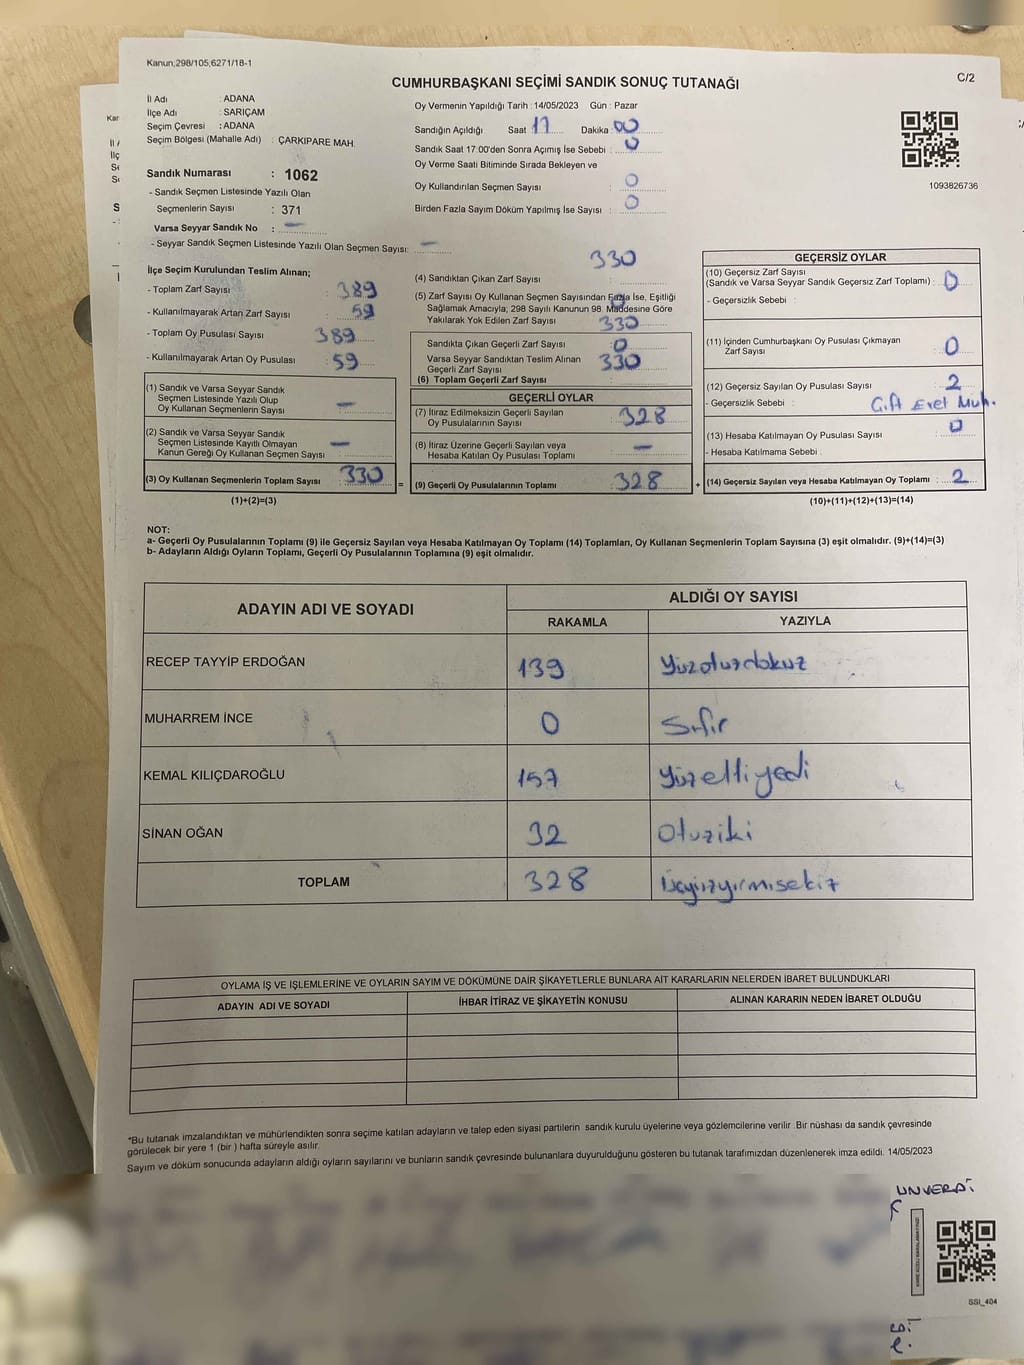 Kanun;298/105;6271/18-1
CUMHURBAŞKANI SEÇİMİ SANDIK SONUÇ TUTANAĞI
C/2
İl Adı : ADANA
İlçe Adı : SARIÇAM
Seçim Çevresi : ADANA
Seçim Bölgesi (Mahalle Adı) : ÇARKIPARE MAH.
Sandık Numarası : 1062
- Sandık Seçmen Listesinde Yazılı Olan
Seçmenlerin Sayısı : 371
Varsa Seyyar Sandık No : -
- Seyyar Sandık Seçmen Listesinde Yazılı Olan Seçmen Sayısı: -
Oy Vermenin Yapıldığı Tarih : 14/05/2023 Gün : Pazar
Sandığın Açıldığı Saat 17 Dakika : 00
Sandık Saat 17:00'den Sonra Açımış İse Sebebi : 0
Oy Verme Saati Bitiminde Sırada Bekleyen ve
Oy Kullandırılan Seçmen Sayısı : 0
Birden Fazla Sayım Döküm Yapılmış İse Sayısı : 0
1093826736
İlçe Seçim Kurulundan Teslim Alınan;
- Toplam Zarf Sayısı : 389
- Kullanılmayarak Artan Zarf Sayısı : 59
- Toplam Oy Pusulası Sayısı : 389
- Kullanılmayarak Artan Oy Pusulası : 59
(1) Sandık ve Varsa Seyyar Sandık
Seçmen Listesinde Yazılı Olup
Oy Kullanan Seçmenlerin Sayısı : -
(2) Sandık ve Varsa Seyyar Sandık
Seçmen Listesinde Kayıtlı Olmayan
Kanun Gereği Oy Kullanan Seçmen Sayısı : -
(3) Oy Kullanan Seçmenlerin Toplam Sayısı : 330
(1)+(2)=(3)
330
(4) Sandıktan Çıkan Zarf Sayısı
(5) Zarf Sayısı Oy Kullanan Seçmen Sayısından Fazla İse, Eşitliği
Sağlamak Amacıyla; 298 Sayılı Kanunun 98. Maddesine Göre
Yakılarak Yok Edilen Zarf Sayısı : 0
330
Sandıkta Çıkan Geçerli Zarf Sayısı : 0
Varsa Seyyar Sandıktan Teslim Alınan
Geçerli Zarf Sayısı : 330
(6) Toplam Geçerli Zarf Sayısı :
GEÇERLİ OYLAR
(7) İtiraz Edilmeksizin Geçerli Sayılan
Oy Pusulalarının Sayısı : 328
(8) İtiraz Üzerine Geçerli Sayılan veya
Hesaba Katılan Oy Pusulası Toplamı : -
= (9) Geçerli Oy Pusulalarının Toplamı : 328
GEÇERSİZ OYLAR
(10) Geçersiz Zarf Sayısı
(Sandık ve Varsa Seyyar Sandık Geçersiz Zarf Toplamı) : 0
- Geçersizlik Sebebi :
(11) İçinden Cumhurbaşkanı Oy Pusulası Çıkmayan
Zarf Sayısı : 0
(12) Geçersiz Sayılan Oy Pusulası Sayısı : 2
- Geçersizlik Sebebi : Çift Evet Müh.
(13) Hesaba Katılmayan Oy Pusulası Sayısı : 0
- Hesaba Katılmama Sebebi :
+ (14) Geçersiz Sayılan veya Hesaba Katılmayan Oy Toplamı : 2
(10)+(11)+(12)+(13)=(14)
NOT:
a- Geçerli Oy Pusulalarının Toplamı (9) ile Geçersiz Sayılan veya Hesaba Katılmayan Oy Toplamı (14) Toplamları, Oy Kullanan Seçmenlerin Toplam Sayısına (3) eşit olmalıdır. (9)+(14)=(3)
b- Adayların Aldığı Oyların Toplamı, Geçerli Oy Pusulalarının Toplamına (9) eşit olmalıdır.
ADAYIN ADI VE SOYADI
ALDIĞI OY SAYISI
RAKAMLA YAZIYLA
RECEP TAYYİP ERDOĞAN 139 Yüzotuzdokuz
MUHARREM İNCE 0 Sıfır
KEMAL KILIÇDAROĞLU 157 Yüzelliyedi
SİNAN OĞAN 32 Otuziki
TOPLAM 328 Üçyüzyirmisekiz
OYLAMA İŞ VE İŞLEMLERİNE VE OYLARIN SAYIM VE DÖKÜMÜNE DAİR ŞİKAYETLERLE BUNLARA AİT KARARLARIN NELERDEN İBARET BULUNDUKLARI
ADAYIN ADI VE SOYADI İHBAR İTİRAZ VE ŞİKAYETİN KONUSU ALINAN KARARIN NEDEN İBARET OLDUĞU
*Bu tutanak imzalandıktan ve mühürlendikten sonra seçime katılan adayların ve talep eden siyasi partilerin sandık kurulu üyelerine veya gözlemcilerine verilir. Bir nüshası da sandık çevresinde
görülecek bir yere 1 (bir ) hafta süreyle asılır.
Sayım ve döküm sonucunda adayların aldığı oyların sayılarını ve bunların sandık çevresinde bulunanlara duyurulduğunu gösteren bu tutanak tarafımızdan düzenlenerek imza edildi. 14/05/2023
UNVERDİ
SSI_404